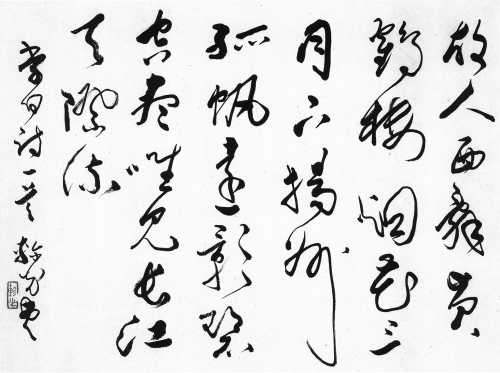 故人西辭黃
鶴樓烟花三
月下揚州
孤帆遠影碧
空盡唯見長江
天際流
李白詩一首